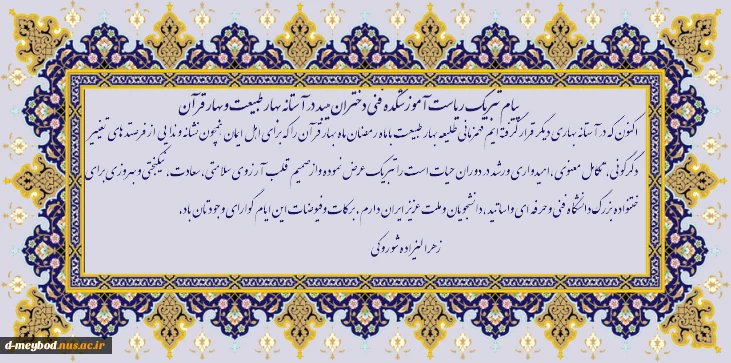 پیام تبریک ریاست آموزشکده فنی دختران میبد در آستانه بهار طبیعت و بهار قرآن
اکنون که در آستانه بهاری دیگر قرار گرفته ایم همزمانی طلیعه بهار طبیعت با ماه رمضان ماه بهار قرآن را که برای اهل ایمان همچون نشانه و ندایی از فرصتهای تغییر
دگرگونی، تکامل معنوی، امیدواری و رشد در دوران حیات است را تبریک عرض نموده و از صمیم قلب آرزوی سلامتی، سعادت، نیکبختی و بهروزی برای
خانواده بزرگ دانشگاه فنی و حرفه ای و اساتید، دانشجویان و ملت عزیز ایران دارم. برکات و فیوضات این ایام گوارای وجودتان باد.
زهرا شوروکی
d-meybod.nus.ac.ir